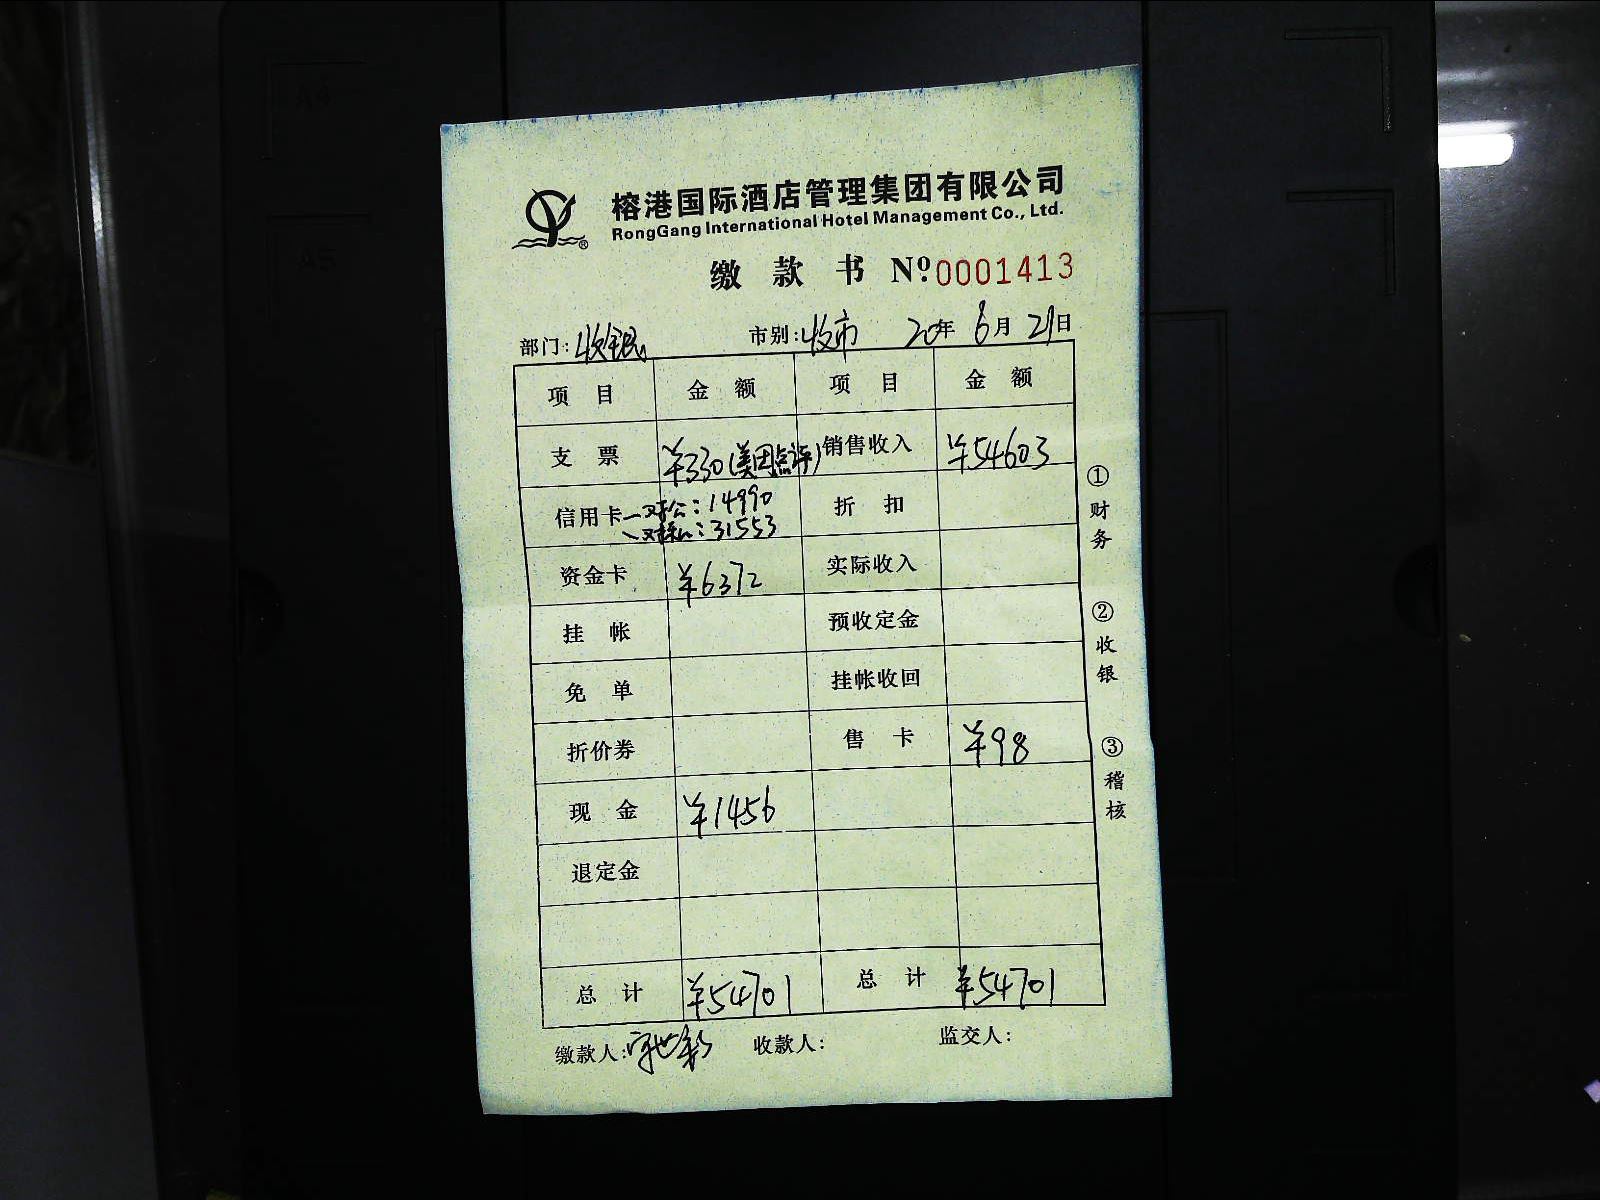 A4
A5
榕港国际酒店管理集团有限公司
RongGang International Hotel Management Co., Ltd.
®
缴款书 Nº 0001413
部门: 收银 市别: 收市 20年 6月 29日
项目 金额 项目 金额
支票 ¥330(美团点评) 销售收入 ¥54603
信用卡 对公: 14990 折扣
: 31553
资金卡 ¥6372 实际收入
挂帐 预收定金
免单 挂帐收回
折价券 售卡 ¥98
现金 ¥1456
退定金
总计 ¥54701 总计 ¥54701
缴款人: 收款人: 监交人:
①财务 ②收银 ③稽核